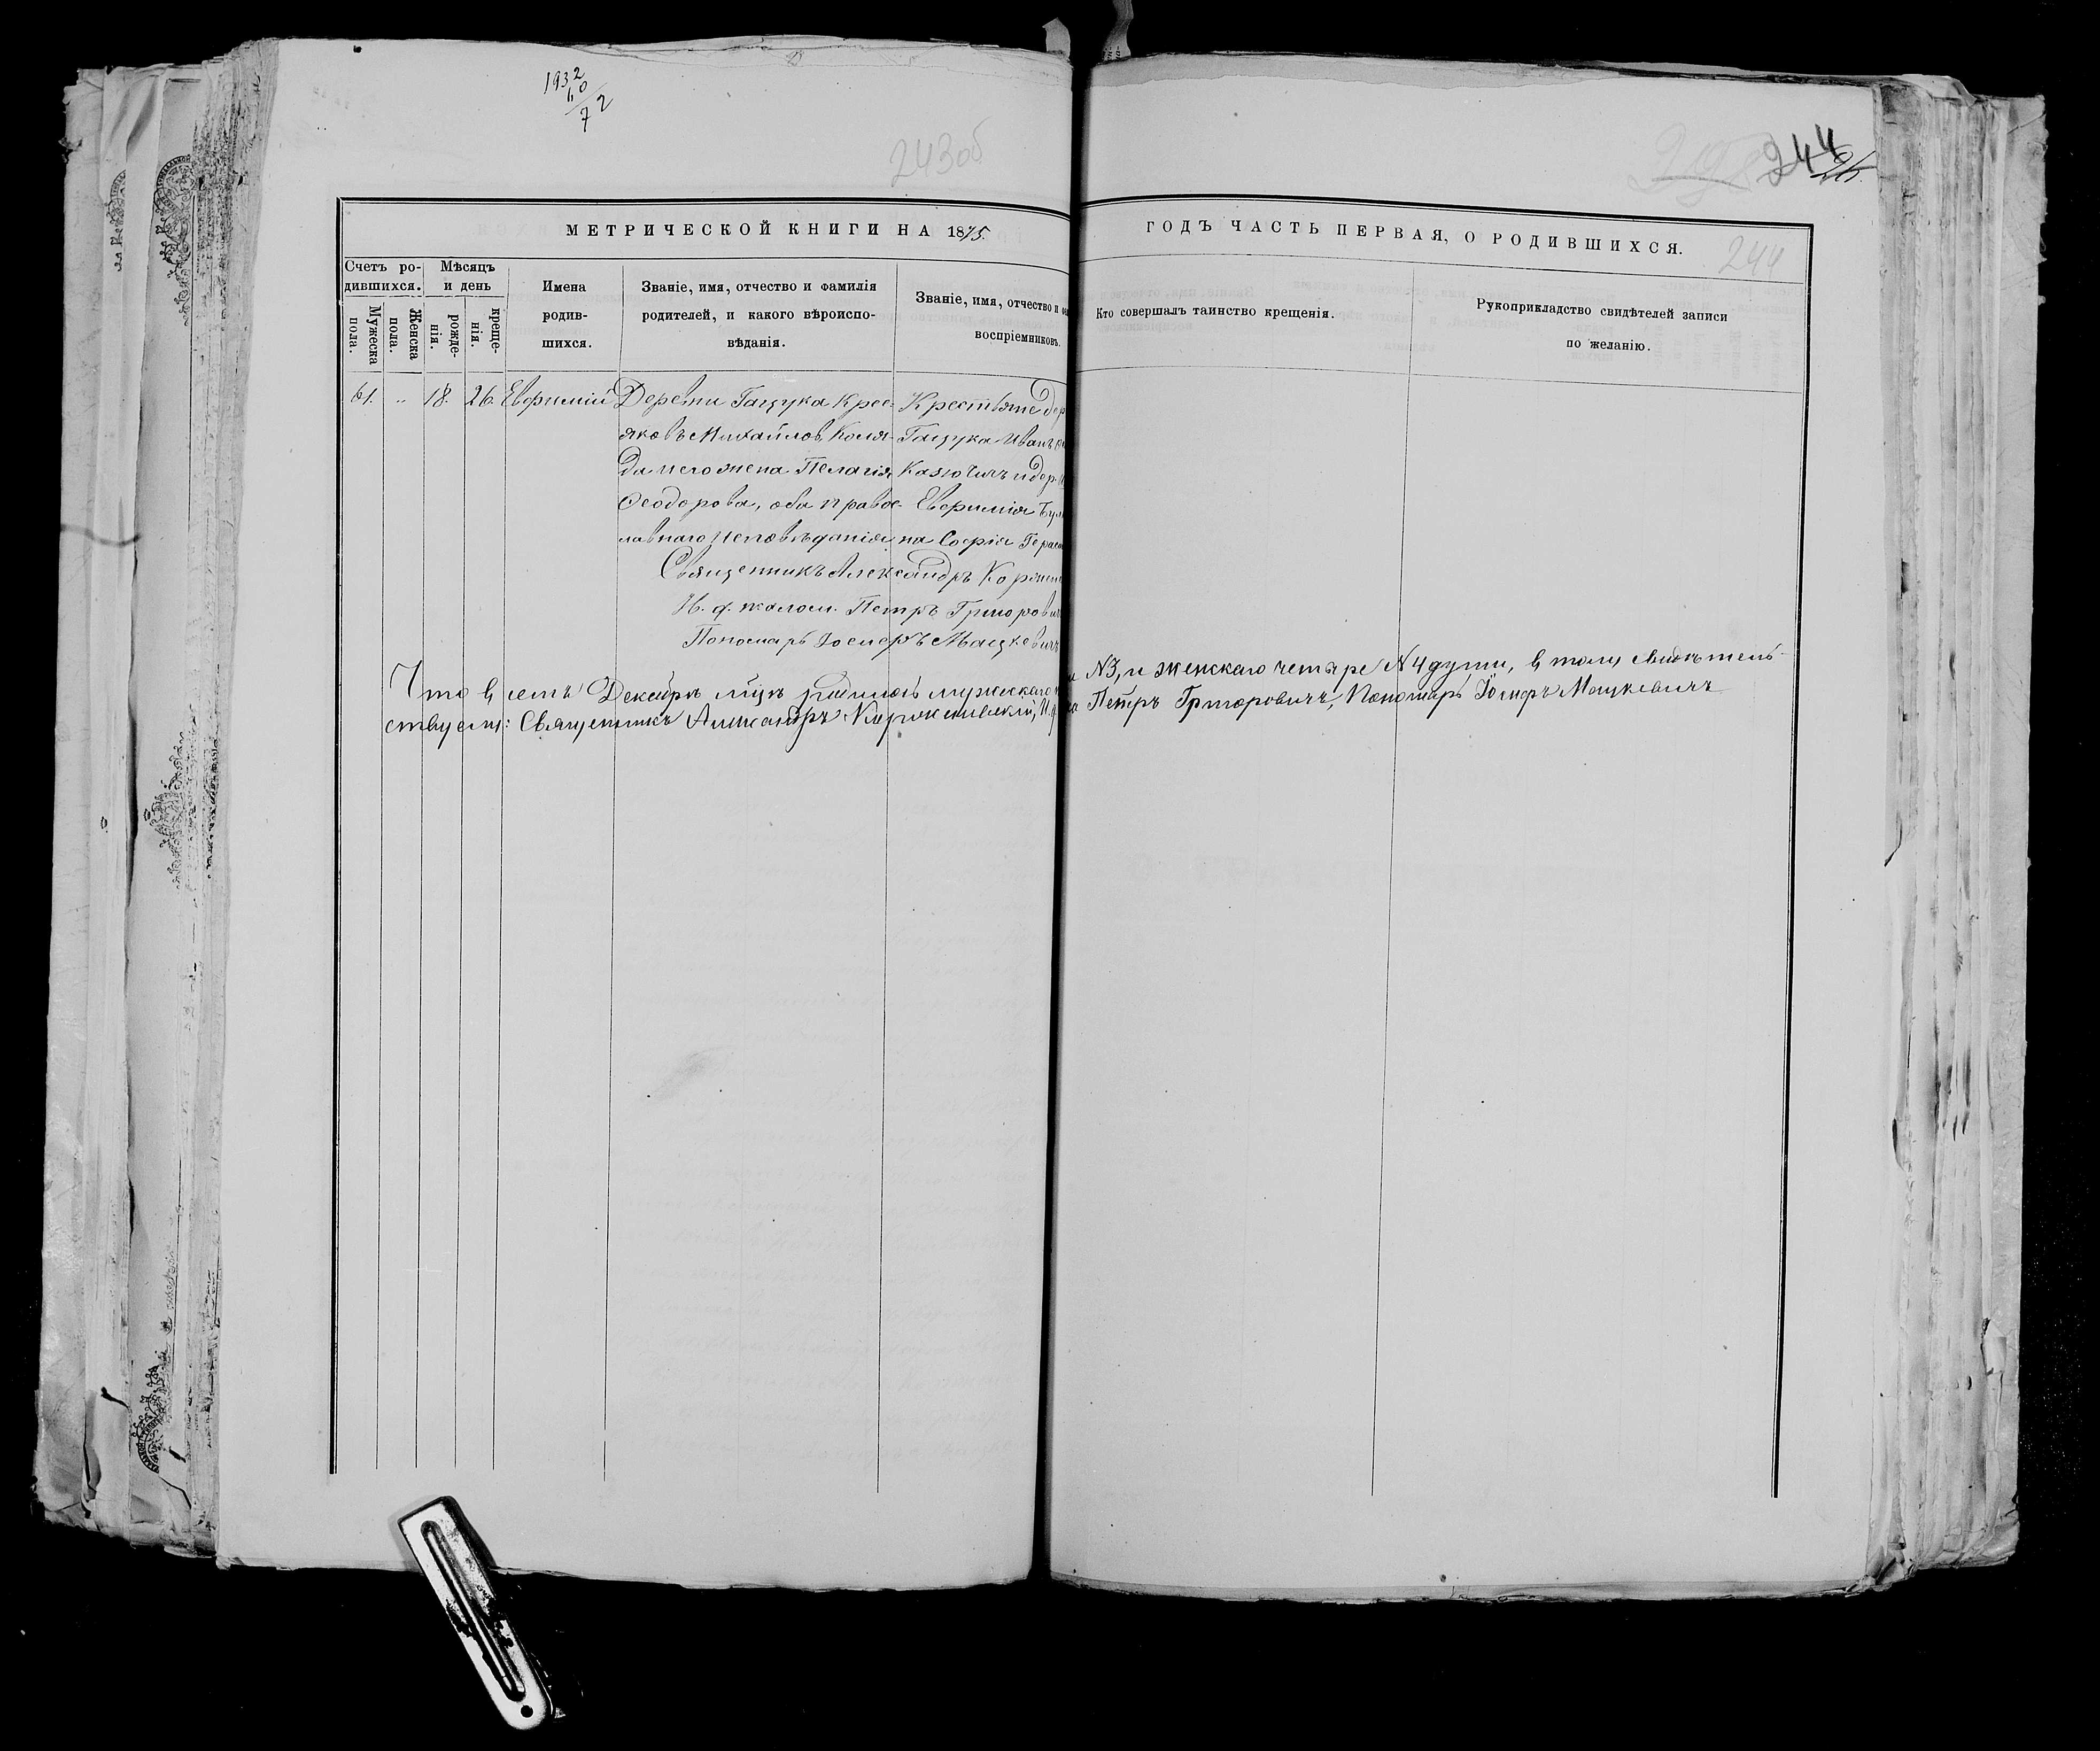 1932
60
72
243об
244
26.
МЕТРИЧЕСКОЙ КНИГИ НА 1875.
ГОДЪ ЧАСТЬ ПЕРВАЯ, О РОДИВШИХСЯ.
244
Счетъ ро-
дившихся.
Мужеска пола.
Женска пола.
Мѣсяцъ
и день
рожде-
нія.
креще-
нія.
Имена
родив-
шихся.
Званіе, имя, отчество и фамилія
родителей, и какого вѣроиспо-
вѣданія.
Званіе, имя, отчество и
воспріемниковъ.
Кто совершалъ таинство крещенія.
Рукоприкладство свидѣтелей записи
по желанію.
61. „ 18. 26. Евфимій
Деревни Гащука Крес-
Яковъ Михайловъ Коля-
да и его жена Пелагія
Ѳеодорова, оба право-
славнаго исповѣданія
Крестьяне дер
Гащука Иванъ
Казючицъ и дер.
Евфимія
на Софія Герас
Священникъ Александръ
И. д. псалом. Петръ Григорович
Пономарь Іосифъ Мацкевичъ
Что въ семъ Декабрѣ мцѣ родилось мужескаго N3, и женскаго четыре N4 души, въ томъ свидѣтель-
ствуемъ: Священникъ Александръ И. д. Петръ Григоровичъ, Пономарь Іосифъ Мацкевичъ